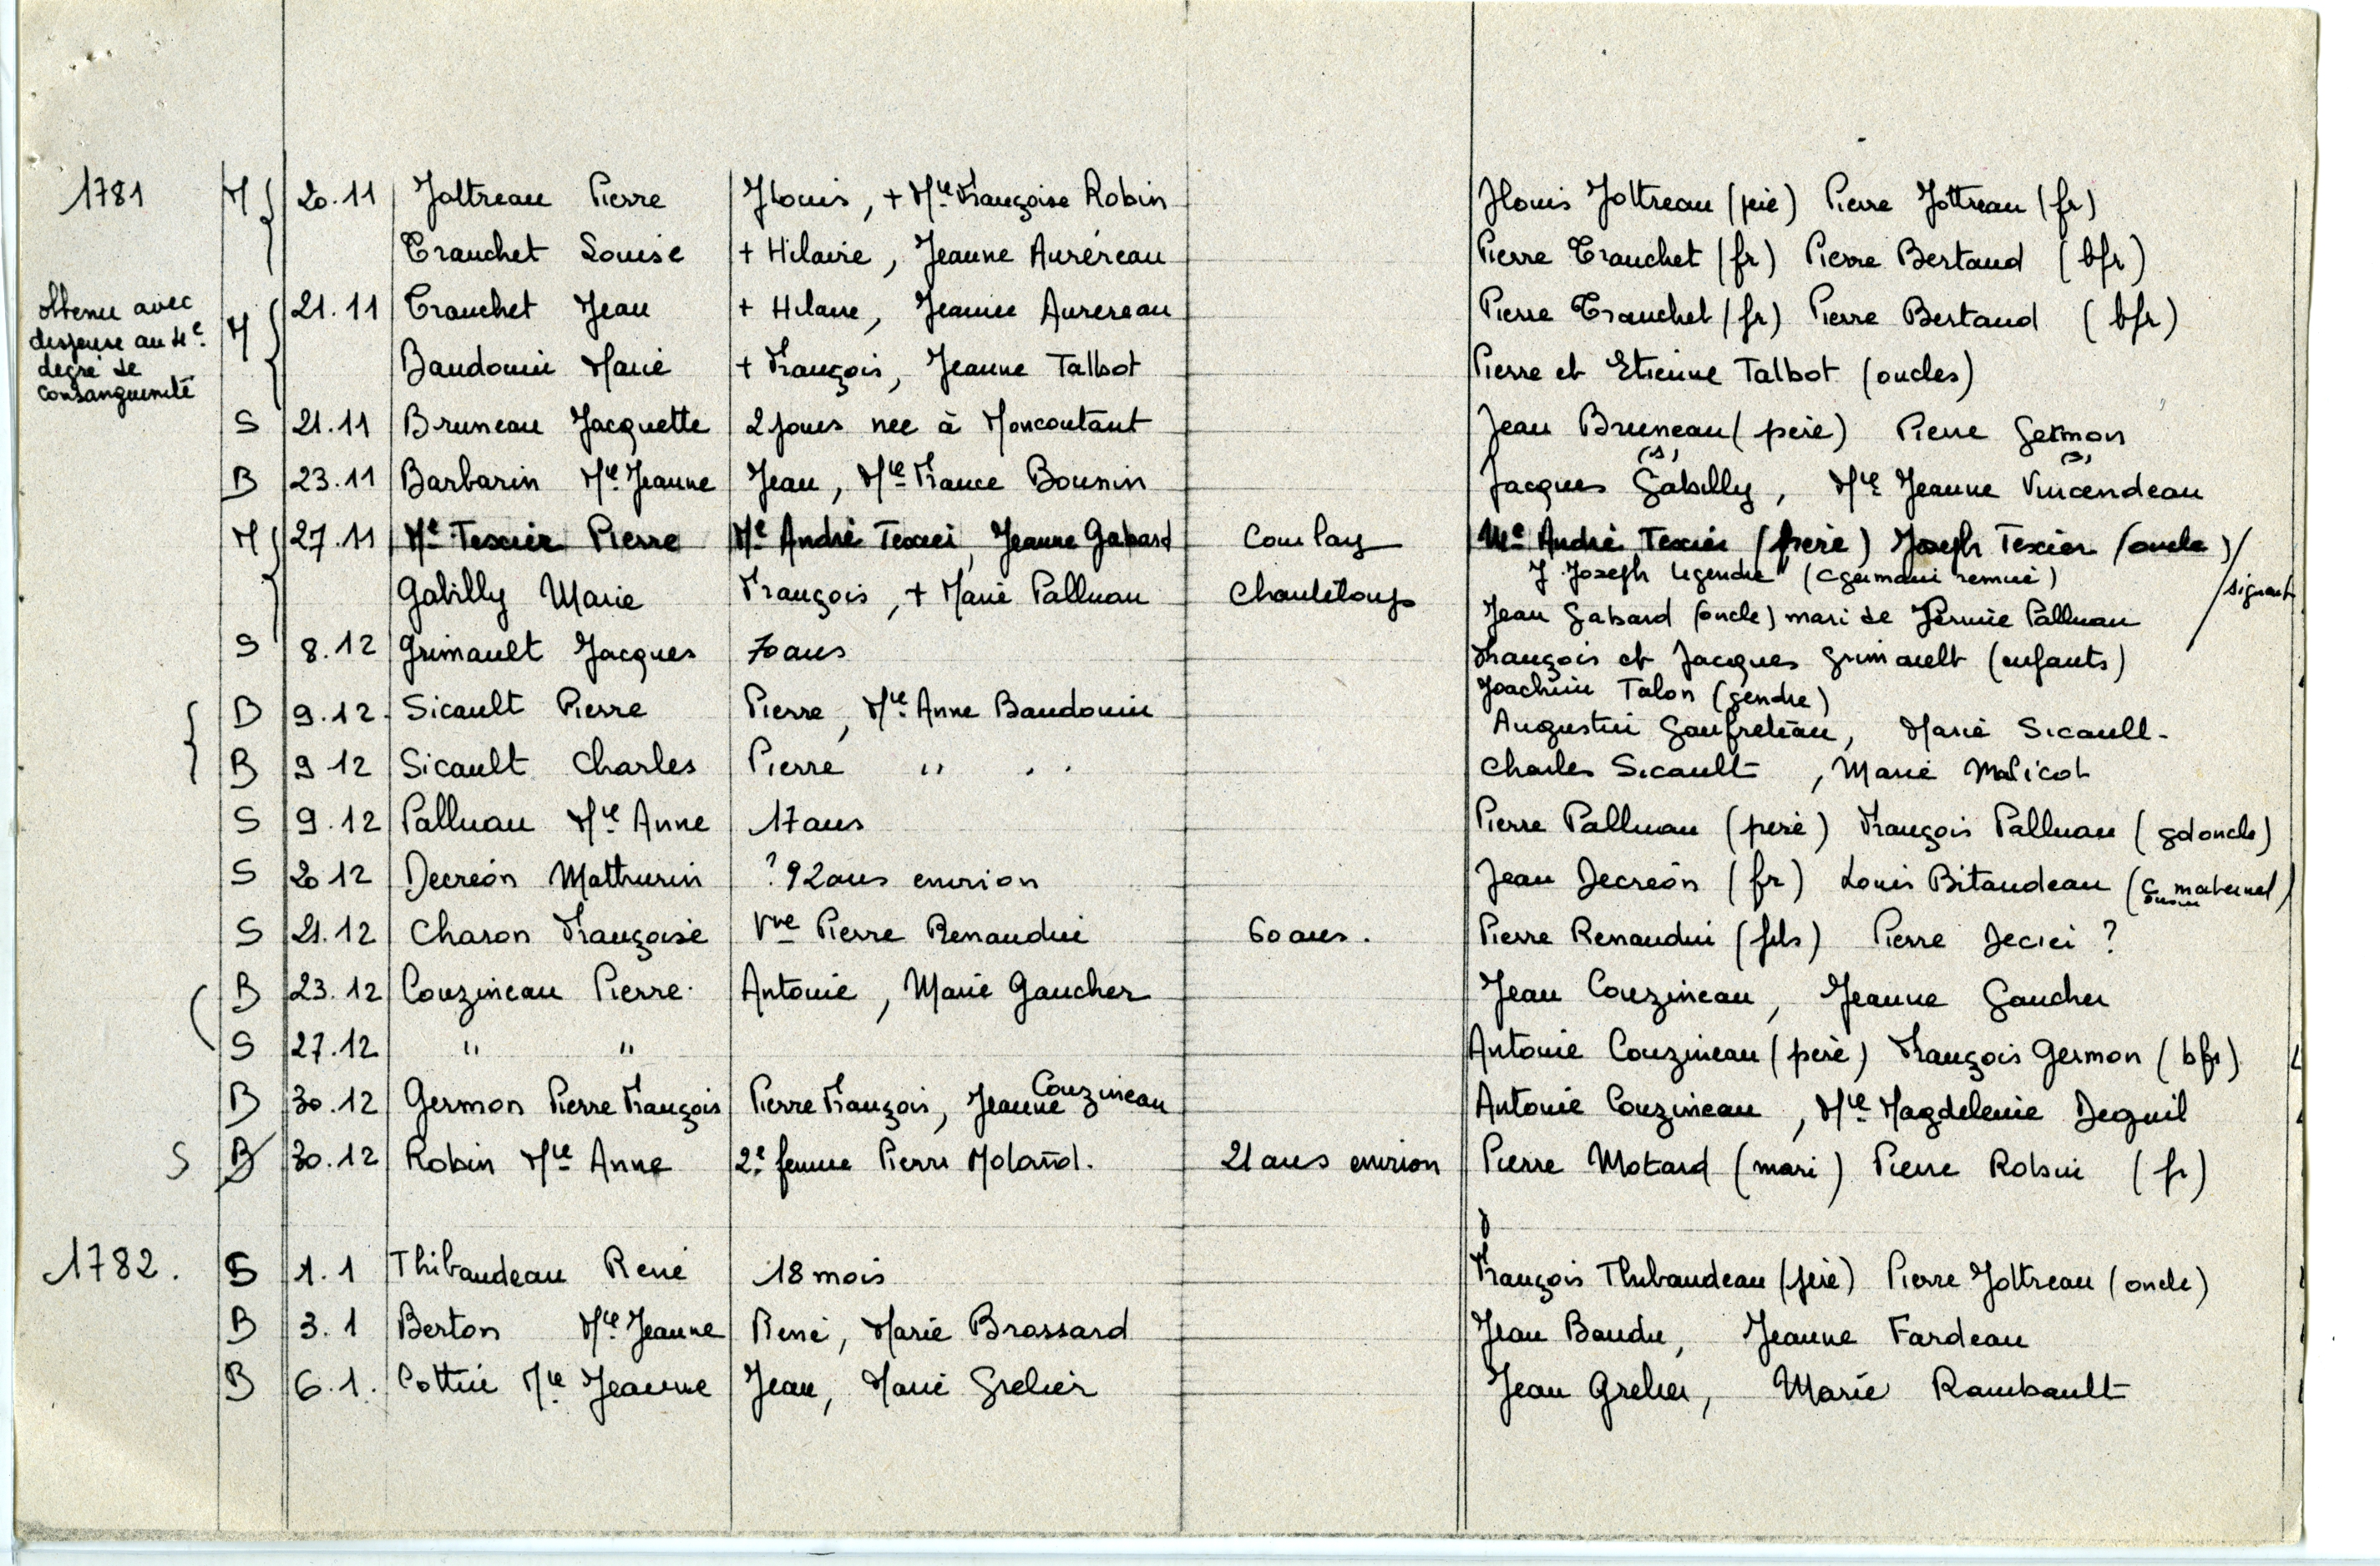 1781 M 20.11 Joltreau Pierre JLouis, + Mie Françoise Robin JLouis Joltreau (père) Pierre Jottreau (fr)
Trauchet Louise + Hilaire, Jeanne Auréreau Pierre Trauchet (fr) Pierre Bertaud (bfr)
obtenu avec dispense au 4e degré de consanguinité M 21.11 Trauchet Jean + Hilaire, Jeanne Aurereau Pierre Trauchet (fr) Pierre Bertaud (bfr)
Baudouin Marie + François, Jeanne Talbot Pierre et Etienne Talbot (oncles)
S 21.11 Bruneau Jacquette 2 jours née à Moncoutant Jean Bruneau (père) Pierre Germon
B 23.11 Barbarin Mie Jeanne Jean, Mie France Bounin Jacques (s) Gabilly, Mie Jeanne (s) Vincendeau
M 27.11 Me Texier Pierre Me André Texier, Jeanne Gabard Courlay Me André Texier (père) Joseph Texier (oncle)
J. Joseph Legendre (c germain remué) signent
Gabilly Marie François, + Marie Palluau Chanteloup Jean Gabard (oncle) mari de Perrine Palluau
S 8.12 Grimault Jacques 70 ans François et Jacques Grimault (enfants)
Joachim Talon (gendre)
B 9.12 Sicault Pierre Pierre, Mie Anne Baudouin Augustin Gaufreteau, Marie Sicault
B 9 12 Sicault Charles Pierre " " Charles Sicault, Marie Malicot
S 9.12 Palluau Mie Anne 17 ans Pierre Palluau (père) François Palluau (gd oncle)
S 20 12 Decréon Mathurin ? 92 ans environ Jean Decréon (fr) Louis Bitaudeau (cousin maternel)
S 21.12 Charon Françoise Vve Pierre Renaudin 60 ans. Pierre Renaudin (fils) Pierre ?
B 23.12 Couzineau Pierre Antoine, Marie Gaucher Jean Couzineau, Jeanne Gaucher
S 27.12 " " Antoine Couzineau (père) François Germon (bfr)
B 30.12 Germon Pierre François Pierre François, Jeanne Couzineau Antoine Couzineau, Mie Magdeleine Deguil
S B 30.12 Robin Mie Anne 2e femme Pierre 21 ans environ Pierre Motard (mari) Pierre Robin (fr)
1782. S 1.1 Thibaudeau René 18 mois François Thibaudeau (père) Pierre Joltreau (oncle)
B 3.1 Berton Mie Jeanne René, Marie Brossard Jean Baudu, Jeanne Fardeau
B 6.1. Cottin Mie Jeanne Jean, Marie Grelier Jean Grelier, Marie Rambault